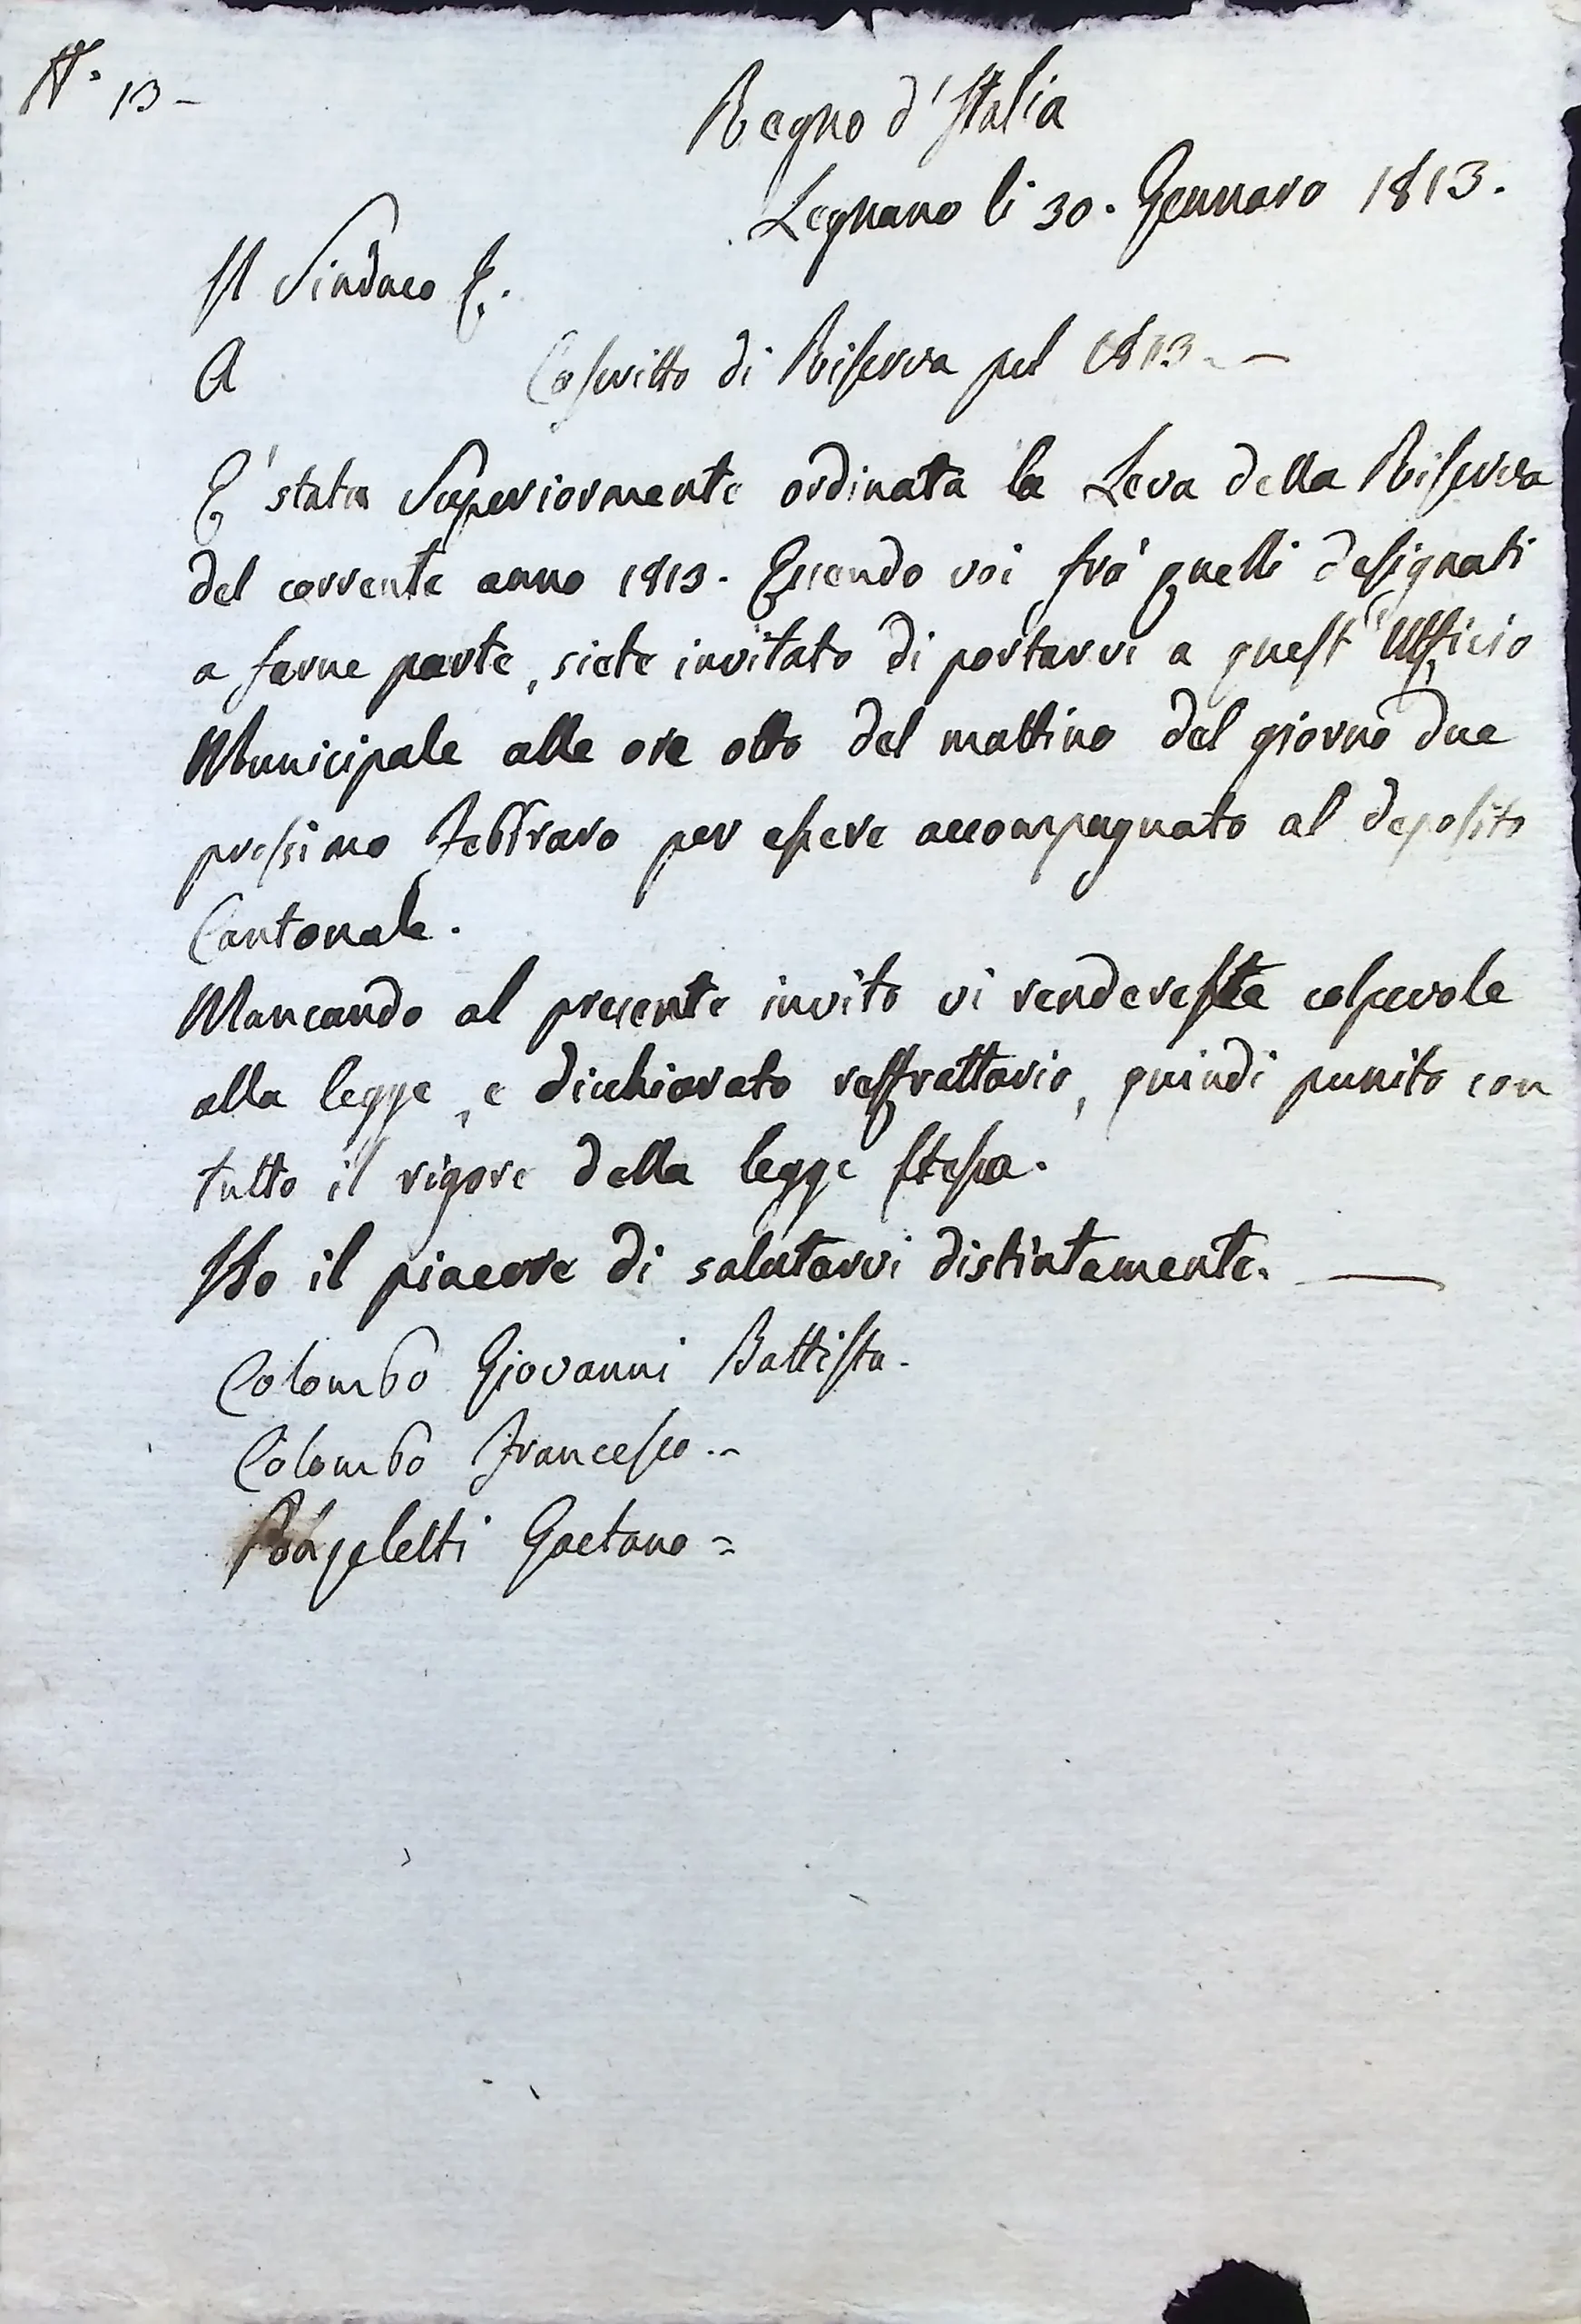 N.° 13 -
Regno d'Italia
Legnano li 30. Gennaro 1813.
Il Sindaco
A Coscritto di Riserva pel 1813. -
E' stata Superiormente ordinata la Leva della Riserva
del corrente anno 1813. Essendo voi frà quelli designati
a farne parte, siete invitato di portarvi a quest'Ufficio
Municipale alle ore otto del mattino del giorno due
prossimo Febbraro per essere accompagnato al deposito
Cantonale.
Mancando al presente invito vi rendereste colpevole
alla legge, e dichiarato reffrattario, quindi punito con
tutto il rigore della legge stessa.
Ho il piacere di salutarvi distintamente. —
Colombo Giovanni Battista.
Colombo Francesco. -
Gaetano =